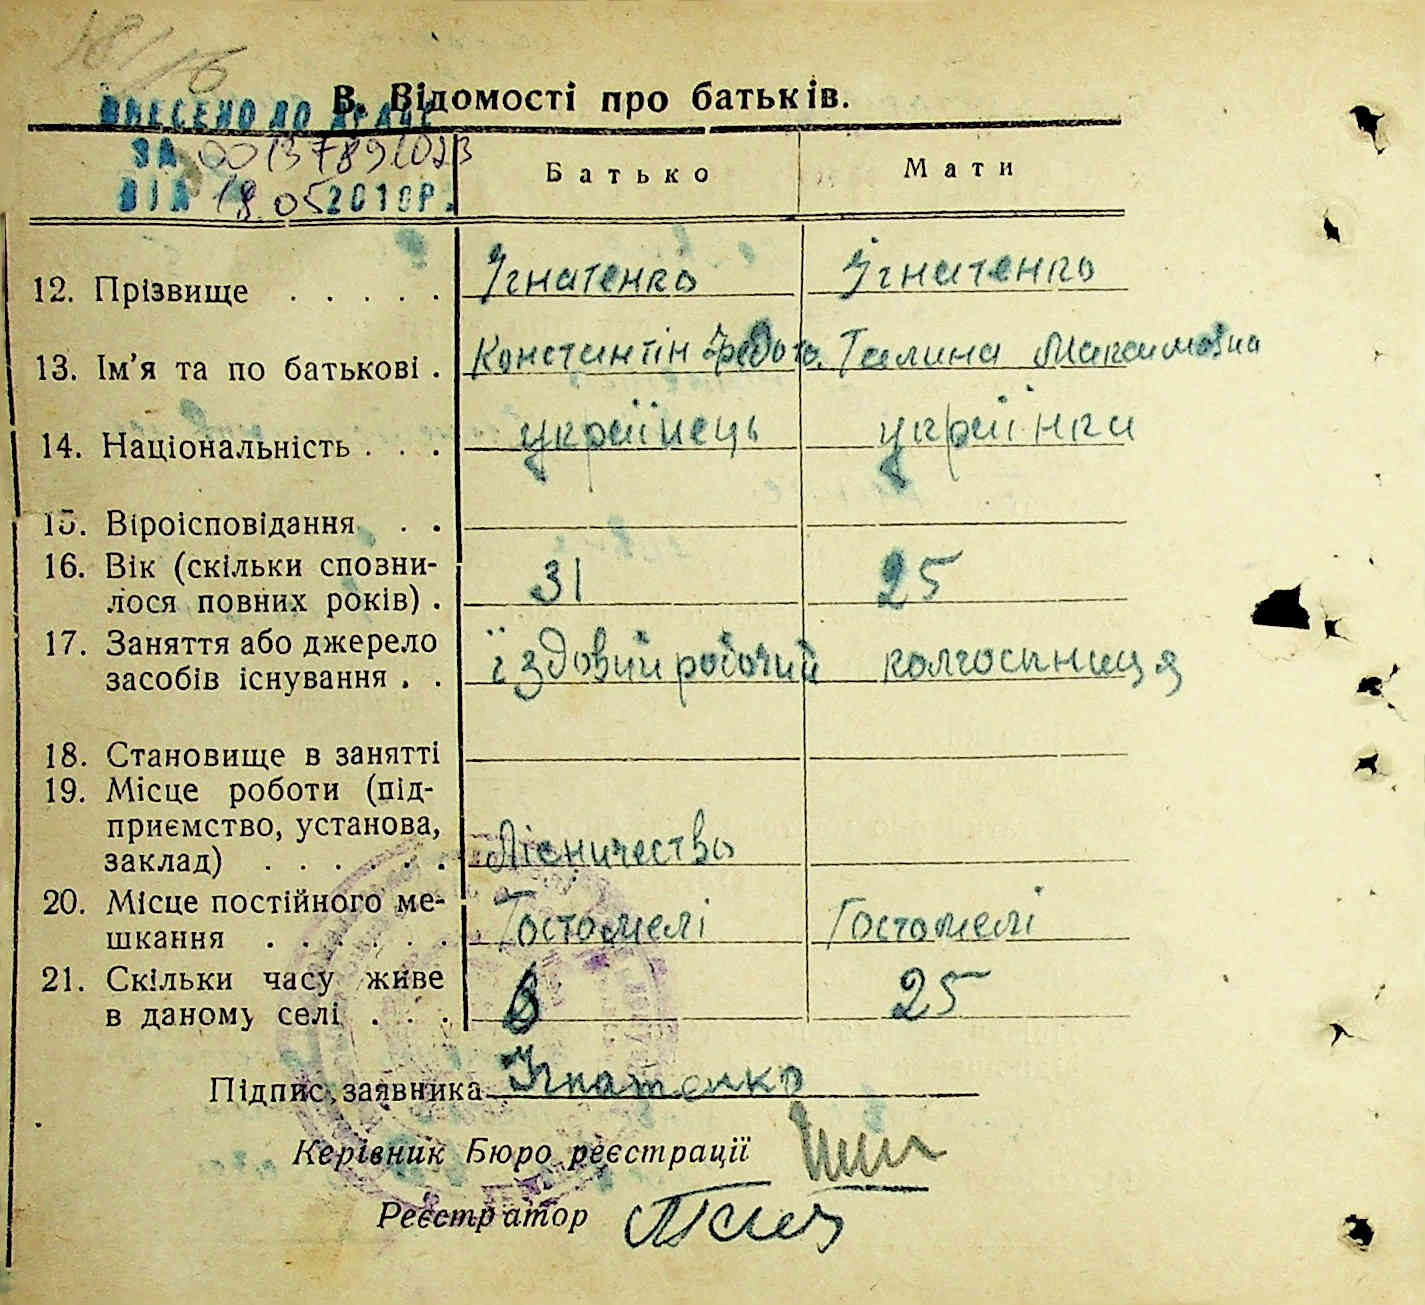 18/16
В. Відомості про батьків.
ВНЕСЕНО ДО ДРАЦС
ЗА 00137891023
ВІД 18.05 2010Р.
Батько Мати
12. Прізвище . . . . . Ігнатенко Ігнатенко
13. Ім'я та по батькові . Константін Федото. Галина Максимовна
14. Національність . . . українець українка
15. Віроісповідання . .
16. Вік (скільки сповни-
лося повних років) . 31 25
17. Заняття або джерело
засобів існування . . їздовий робочий колгоспниця
18. Становище в занятті
19. Місце роботи (під-
приємство, установа,
заклад) . . . . . . Лісничество
20. Місце постійного ме-
шкання . . . . . . Гостомелі Гостомелі
21. Скільки часу живе
в даному селі . . . 6 25
Підпис заявника Ігнатенко
Керівник Бюро реєстрації
Реєстратор